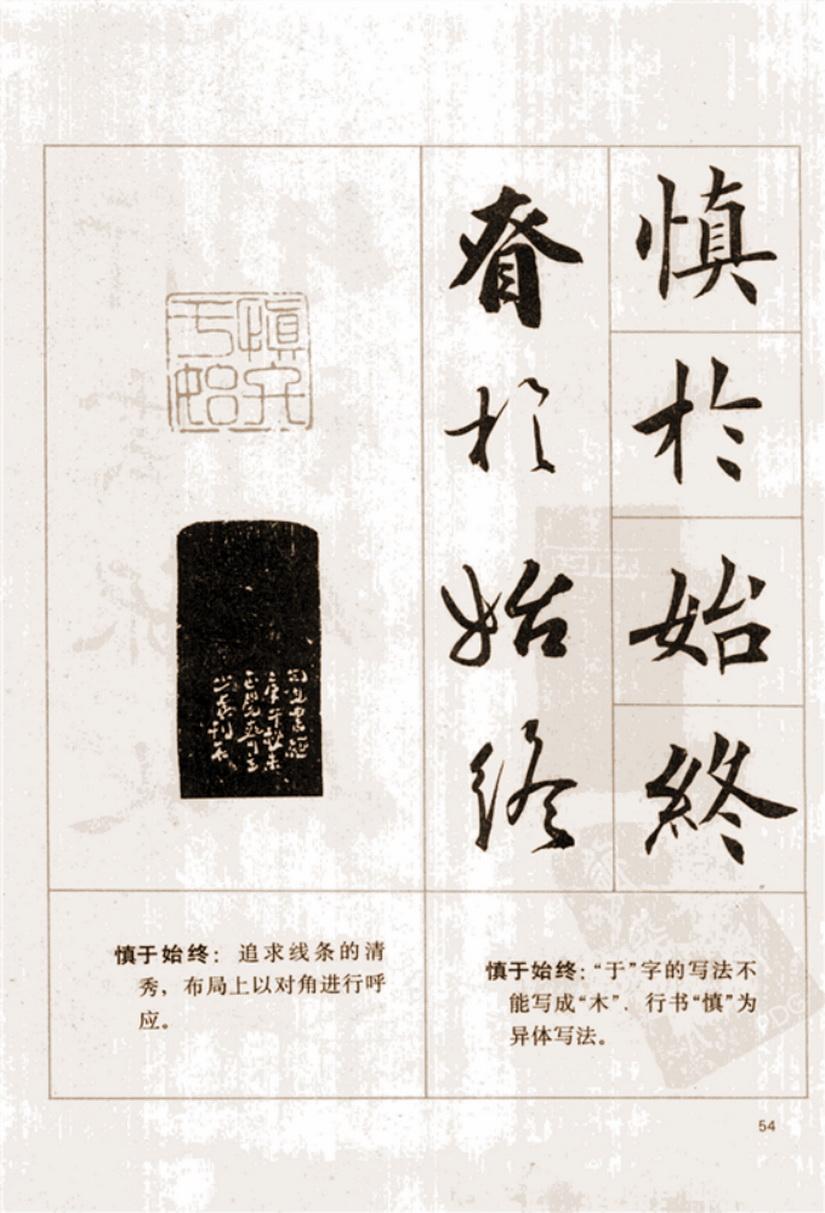 慎於始終
昚於始终
慎于始终
慎于始终：追求线条的清
秀，布局上以对角进行呼
应。
慎于始终：“于”字的写法不
能写成“木”．行书“慎”为
异体写法。
54